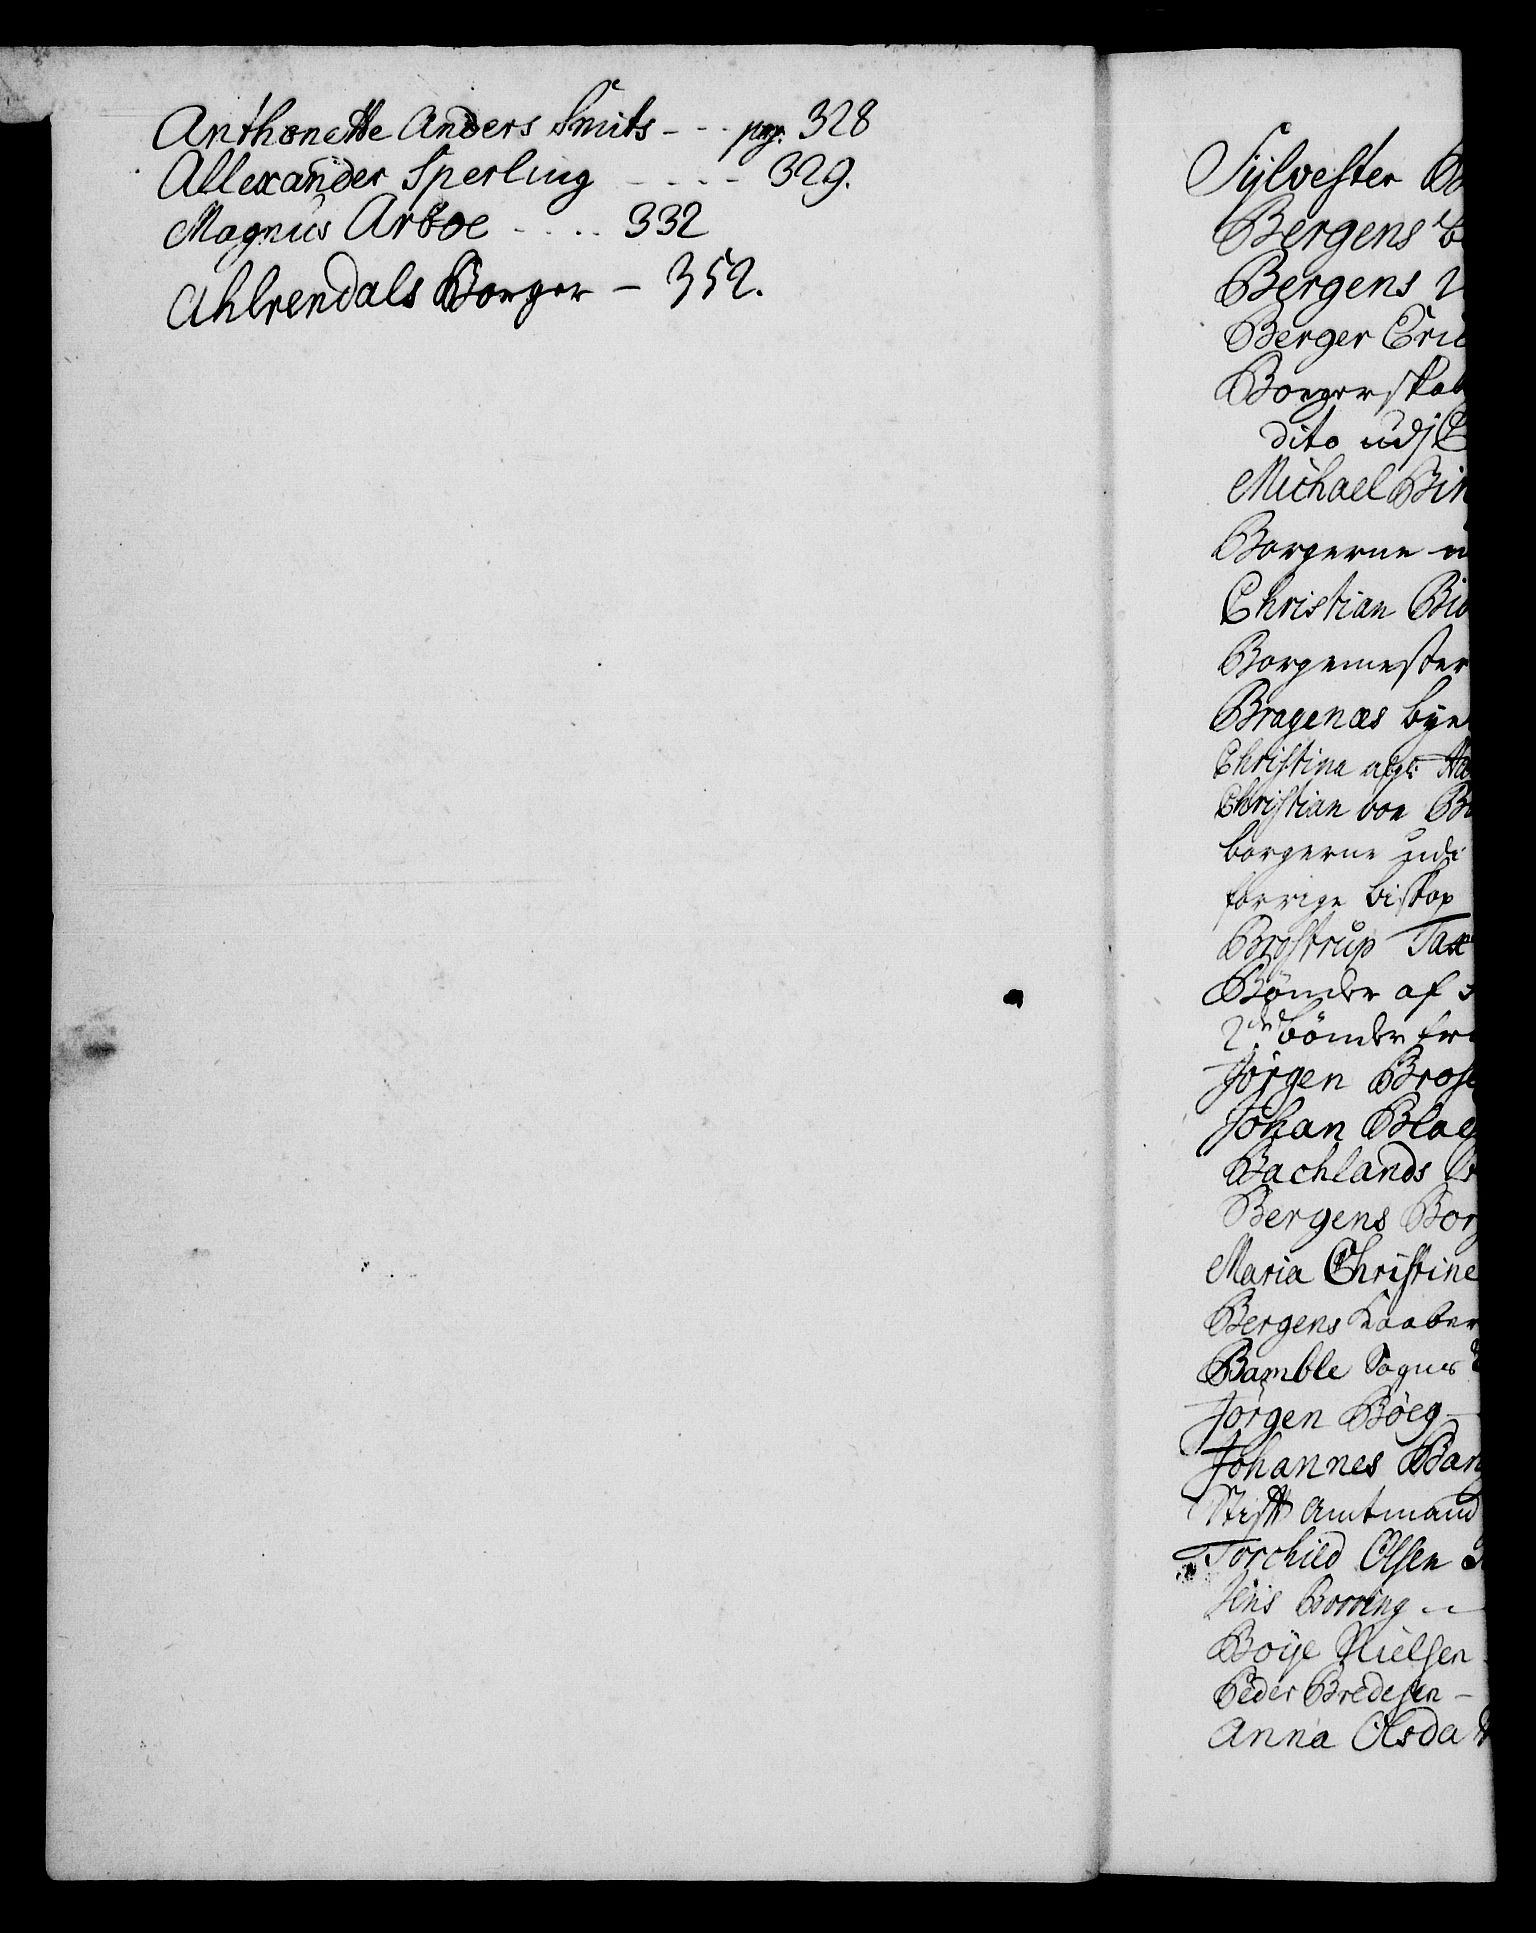 Anthonette Anders Smits - - - pag. 328
Allexander Sperling - - - - 329.
Magnus Arboe - - . . 332
Ahlrendals Borger - 352.
Sÿlvester
Bergens
Bergens
Berger Eric
Borgerskab
dito udj
Michael Bin
Borgerne
Christian Bi
Borgemester
Bragenæs bye
Christina
Christian von B
borgerne udi
forrige biskop
Brostrup Tax
Bønder af
2de bønder fr
Jørgen Brose
Johan Blae
Bachlands
Bergens Borg
Maria Christine
Bergens Kaaber
Bamble Sogns
Jørgen Bøeg -
Johannes Bang
Stift Amtmand
Torchild Olsen
Jens Borring - -
Boÿe Nielsen
Peder Bredesen -
Anna Olsdatt